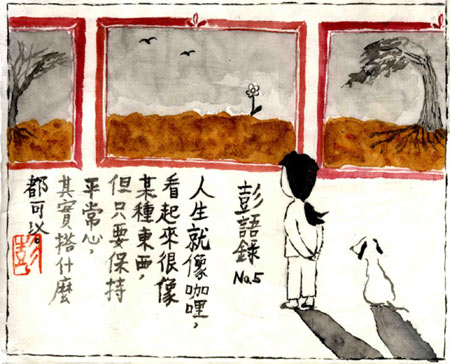 彭語錄
No.5
人生就像咖哩，
看起來很像
某種東西，
但只要保持
平常心，
其實搭什麼
都可以